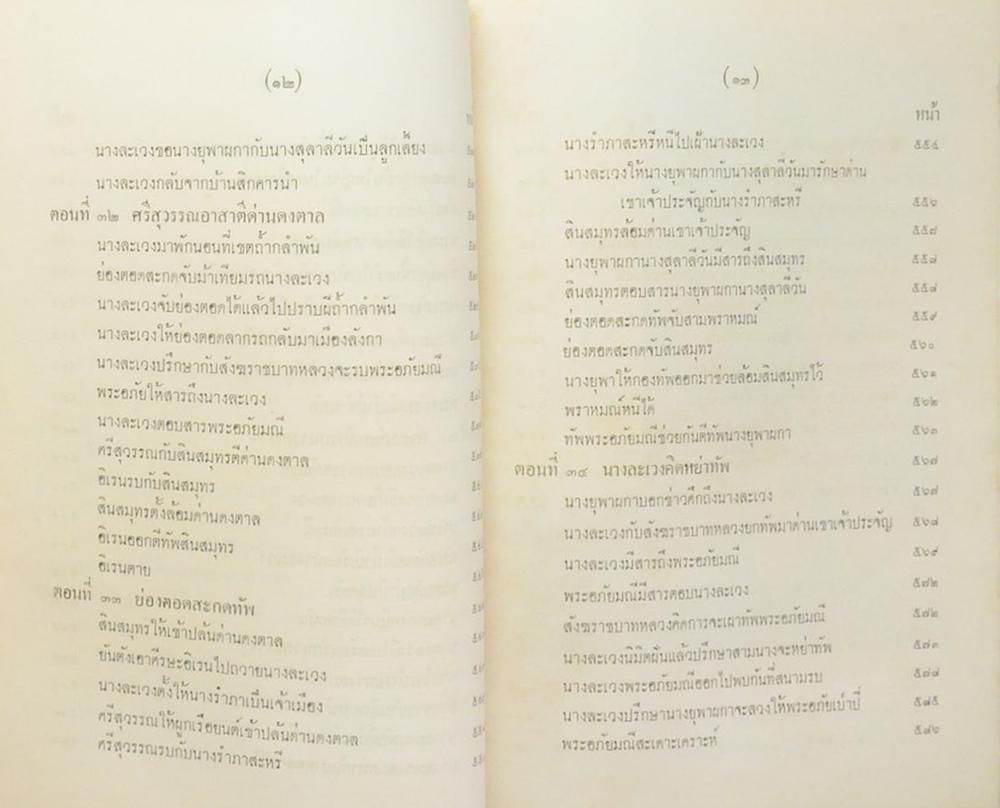 (๑๒)
นางละเวงขอนางยุพาผกากับนางสุลาลีวันเป็นลูกเลี้ยง
นางละเวงกลับจากบ้านสิกคารนำ
ตอนที่ ๓๒ ศรีสุวรรณอาสาตีด่านดงตาล
นางละเวงมาพักนอนที่เขตถ้ำกลำพัน
ย่องตอดสะกดจับม้าเทียมรถนางละเวง
นางละเวงจับย่องตอดได้แล้วไปปราบผีถ้ำกลำพัน
นางละเวงให้ย่องตอดลากรถกลับมาเมืองลังกา
นางละเวงปรึกษากับสังฆราชบาทหลวงจะรบพระอภัยมณี
พระอภัยให้สารถึงนางละเวง
นางละเวงตอบสารพระอภัยมณี
ศรีสุวรรณกับสินสมุทรตีด่านดงตาล
อิเรนรบกับสินสมุทร
สินสมุทรตั้งล้อมด่านดงตาล
อิเรนออกตีทัพสินสมุทร
อิเรนตาย
ตอนที่ ๓๓ ย่องตอดสะกดทัพ
สินสมุทรให้เข้าปล้นด่านดงตาล
ยันตังเอาศีรษะอิเรนไปถวายนางละเวง
นางละเวงตั้งให้นางรำภาเป็นเจ้าเมือง
ศรีสุวรรณให้ผูกเรือยนต์เข้าปล้นด่านดงตาล
ศรีสุวรรณรบกับนางรำภาสะหรี
(๑๓)
หน้า
นางรำภาสะหรีหนีไปเฝ้านางละเวง ๕๕๔
นางละเวงให้นางยุพาผกากับนางสุลาลีวันมารักษาด่าน
เขาเจ้าประจัญกับนางรำภาสะหรี ๕๕๖
สินสมุทรล้อมด่านเขาเจ้าประจัญ ๕๕๗
นางยุพาผกานางสุลาลีวันมีสารถึงสินสมุทร ๕๕๗
สินสมุทรตอบสารนางยุพาผกานางสุลาลีวัน ๕๕๘
ย่องตอดสะกดทัพจับสามพราหมณ์ ๕๕๙
ย่องตอดสะกดจับสินสมุทร ๕๖๐
นางยุพาให้กองทัพออกมาช่วยล้อมสินสมุทรไว้ ๕๖๑
พราหมณ์หนีได้ ๕๖๒
ทัพพระอภัยมณีช่วยกันตีทัพนางยุพาผกา ๕๖๓
ตอนที่ ๓๔ นางละเวงคิดหย่าทัพ ๕๖๗
นางยุพาผกาบอกข่าวศึกถึงนางละเวง ๕๖๗
นางละเวงกับสังฆราชบาทหลวงยกทัพมาด่านเขาเจ้าประจัญ ๕๖๘
นางละเวงมีสารถึงพระอภัยมณี ๕๖๙
พระอภัยมณีมีสารตอบนางละเวง ๕๗๒
สังฆราชบาทหลวงคิดการจะเผาทัพพระอภัยมณี ๕๗๒
นางละเวงนิมิตฝันแล้วปรึกษาสามนางจะหย่าทัพ ๕๗๓
นางละเวงพระอภัยมณีออกไปพบกันที่สนามรบ ๕๗๗
นางละเวงปรึกษานางยุพาผกาจะลวงให้พระอภัยเป่าปี่ ๕๘๕
พระอภัยมณีสะเดาะเคราะห์ ๕๘๖